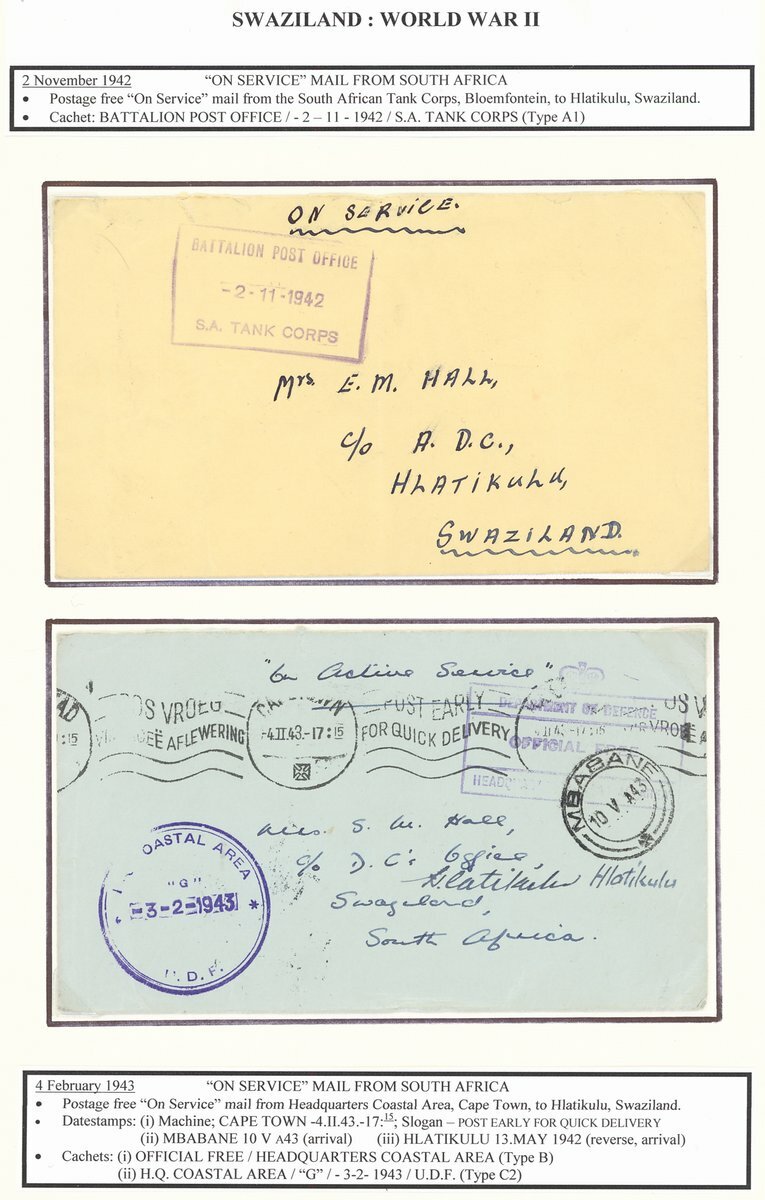 SWAZILAND : WORLD WAR II
2 November 1942 “ON SERVICE” MAIL FROM SOUTH AFRICA
• Postage free “On Service” mail from the South African Tank Corps, Bloemfontein, to Hlatikulu, Swaziland.
• Cachet: BATTALION POST OFFICE / - 2 – 11 - 1942 / S.A. TANK CORPS (Type A1)
ON SERVICE.
BATTALION POST OFFICE
-2-11-1942
S.A. TANK CORPS
Mrs. E. M. HALL,
c/o A. D.C.,
HLATIKULU,
SWAZILAND.
"On Active Service"
OS VROEG
AFLEWERING
-4.II.43.-17:15
POST EARLY
FOR QUICK DELIVERY
DEPARTMENT OF DEFENCE
OFFICIAL FREE
MBABANE
10 V A43
COASTAL AREA
"G"
-3-2-1943
U.D.F.
Mrs. E. M. Hall,
c/o D.C's Office,
Hlatikulu Hlatikulu
Swaziland,
South Africa.
4 February 1943 “ON SERVICE” MAIL FROM SOUTH AFRICA
• Postage free “On Service” mail from Headquarters Coastal Area, Cape Town, to Hlatikulu, Swaziland.
• Datestamps: (i) Machine; CAPE TOWN -4.II.43.-17:15; Slogan – POST EARLY FOR QUICK DELIVERY
(ii) MBABANE 10 V A43 (arrival) (iii) HLATIKULU 13.MAY 1942 (reverse, arrival)
• Cachets: (i) OFFICIAL FREE / HEADQUARTERS COASTAL AREA (Type B)
(ii) H.Q. COASTAL AREA / “G” / - 3-2- 1943 / U.D.F. (Type C2)